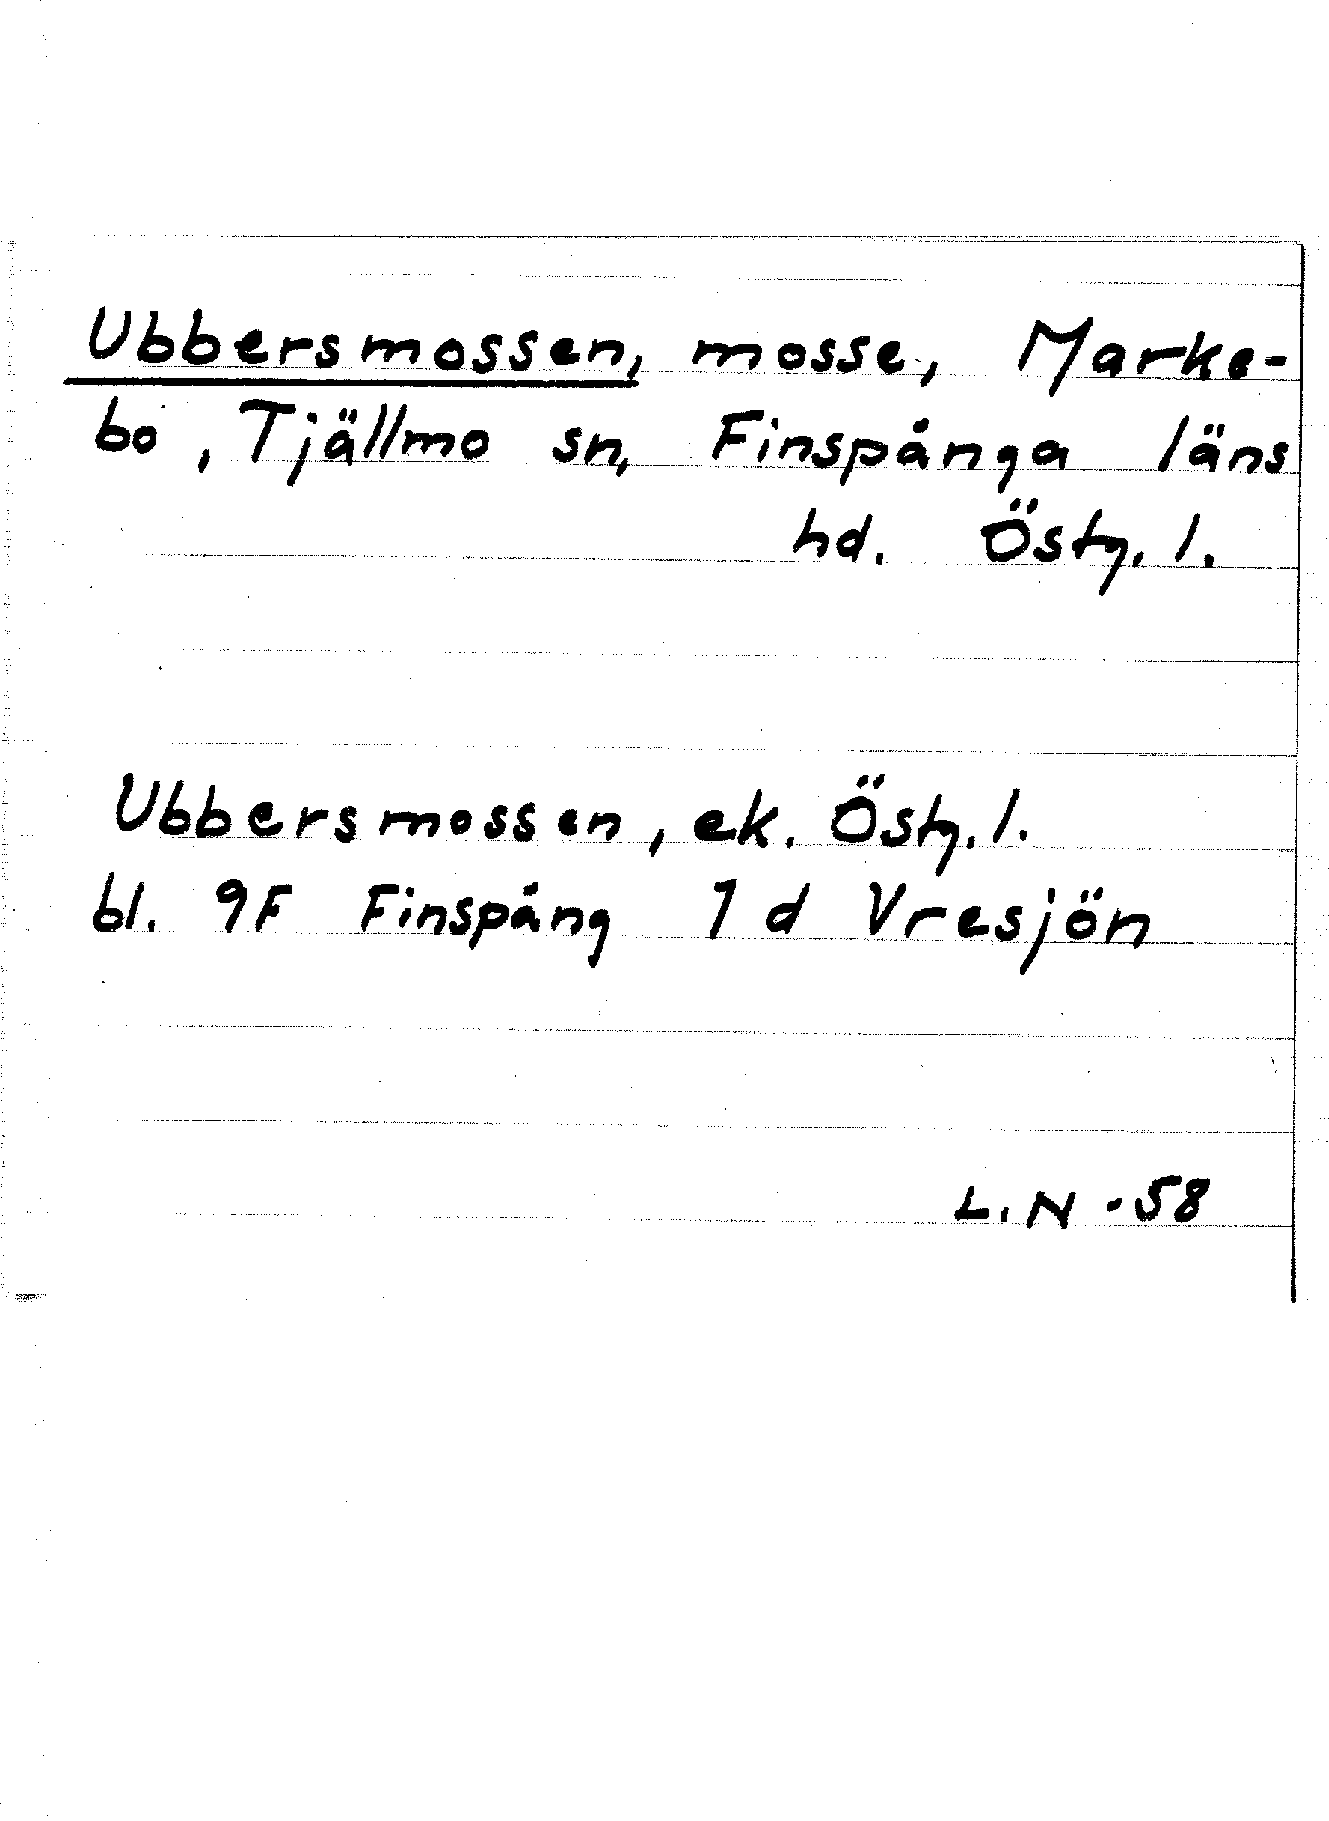 Ubbersmossen, mosse, Marke-
bo, Tjällmo sn, Finspånga läns
hd. Östg. l.
Ubbersmossen, ek. Östg. l.
bl. 9F Finspång 1 d Vresjön
L.N -58